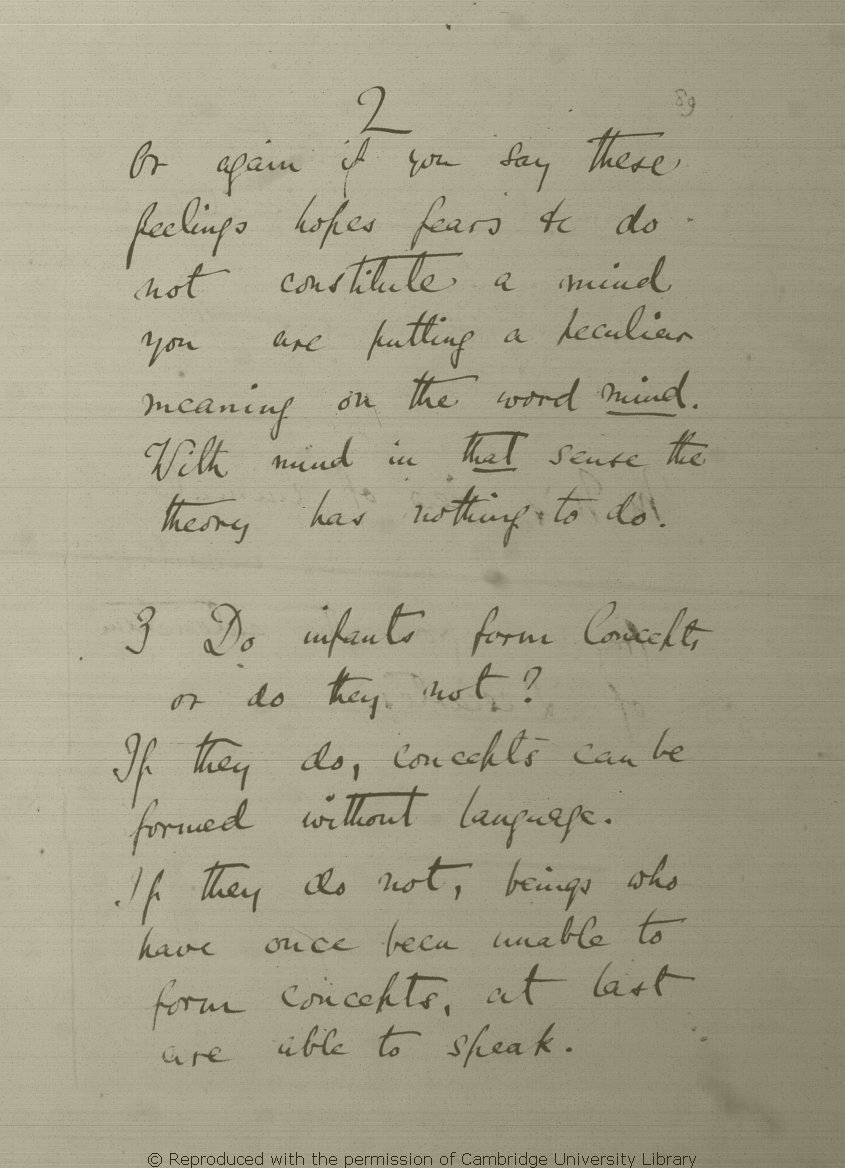 2
89
Or again if you say these
feelings hopes fears &c do
not constitute a mind
you are putting a peculiar
meaning on the word mind.
With mind in that sense the
theory has nothing to do.
3 Do infants form Concepts
or do they not?
If they do, concepts can be
formed without language.
If they do not, beings who
have once been unable to
form concepts, at last
are able to speak.
© Reproduced with the permission of Cambridge University Library